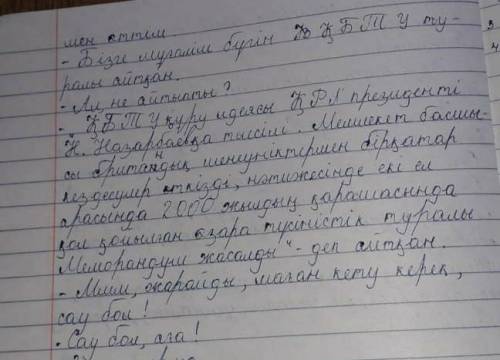 мен өттім
- Бізге мұғалім бүгін ҚБТУ ту-
ралы айтқан.
- Ал, не айтыпты?
- ҚБТУ құру идеясы ҚР-ң президенті
Н. Назарбаевқа тиесілі. Мемлекет басшы-
сы британдық шенеуніктермен бірқатар
кездесулер өткізді, нәтижесінде екі ел
арасында 2000 жылдың қарашасында
қол қойылған өзара түсіністік туралы
Меморандум жасалды" - деп айтқан.
- Ммм, жарайды, маған кету керек,
сау бол!
- Сау бол, аға!